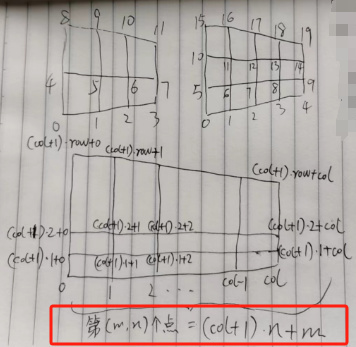 8 9 10 11
4 5 6 7
0 1 2 3
15 16 17 18 19
10 11 12 13 14
5 6 7 8 9
0 1 2 3 4
(col+1)·row+0 (col+1)·row+1 (col+1)·row+col
(col+1)·2+0 (col+1)·2+1 (col+1)·2+2 (col+1)·2+col
(col+1)·1+0 (col+1)·1+1 (col+1)·1+2 (col+1)·1+col
0 1 2 ··· col-1 col
第(m,n)个点=(col+1)·n+m